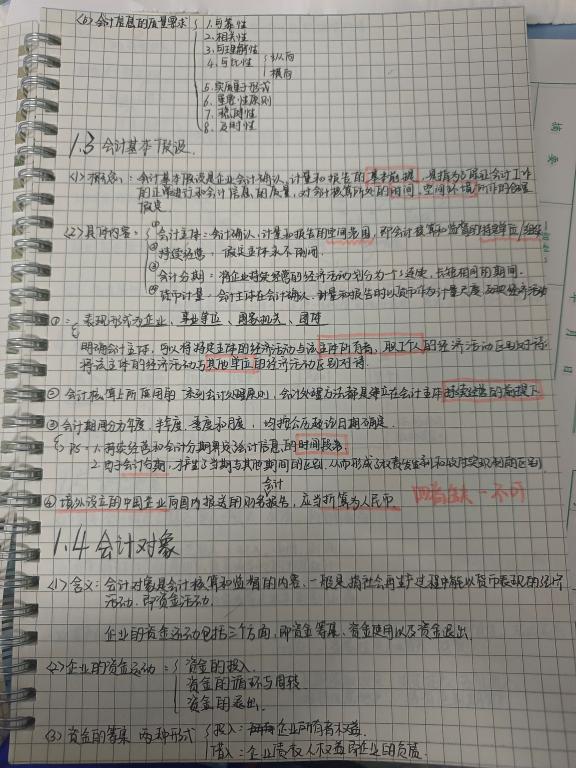 <6> 会计信息的质量要求 { 1.可靠性
2.相关性
3.可理解性
4.可比性 { 纵向
横向
5.实质重于形式
6.重要性原则
7.谨慎性
8.及时性
1.3 会计基本假设
<1> 概念:会计基本假设是企业会计确认、计量和报告的基本前提,是指为了保证会计工作
的正常进行和会计信息的质量,对会计核算所处的时间、空间环境所作的合理
假定
<2> 具体内容:{ ①会计主体:会计确认、计量和报告的空间范围,即会计核算和监督的特定单位/组织
②持续经营:假定主体永不倒闭.
③会计分期:将企业持续经营的经济活动划分为一个个连续、长短相同的期间.
④货币计量:会计主体在会计确认、计量和报告时以货币作为计量尺度,反映经济活动
①:{ 表现形式为企业、事业单位、国家机关、团体
明确会计主体,可以将特定主体的经济活动与该主体所有者、职工个人的经济活动区别对待.
将该主体的经济活动与其他单位的经济活动区别对待.
② 会计核算上所应用的一系列会计处理原则,会计处理方法都是建立在会计主体持续经营的前提下
③ 会计期间分为年度、半年度、季度和月度,均按公历起讫日期确定.
{ PS: 1.持续经营和会计分期界定会计信息的时间段落
2.由于会计分期,才产生了当期与其他期间的区别,从而形成了权责发生制和收付实现制的区别
会计
④ 境外设立的中国企业向国内报送的财务报告,应当折算为人民币
四者缺一不可
1.4 会计对象
<1> 含义:会计对象是会计核算和监督的内容,一般是指社会再生产过程中能以货币表现的经济
活动,即资金活动.
企业的资金运动包括三个方面,即资金筹集、资金使用以及资金退出.
<2> 企业的资金运动:{ 资金的投入.
资金的循环与周转
资金的退出.
<3> 资金的筹集 两种形式 { 投入:企业所有者权益.
借入:企业债权人权益即企业的负债.
摘要
月
日